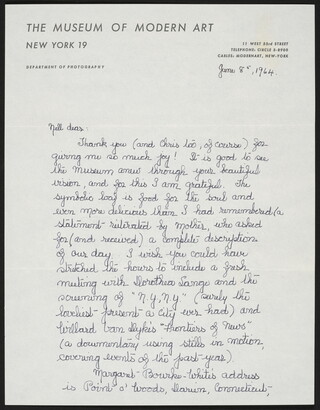 THE MUSEUM OF MODERN ART
NEW YORK 19
11 WEST 53rd STREET
TELEPHONE: CIRCLE 5-8900
CABLES: MODERNART, NEW-YORK
DEPARTMENT OF PHOTOGRAPHY
June 8th, 1964.
Nell dear:
Thank you (and Chris too, of course) for
giving me so much joy! It is good to see
the museum anew through your beautiful
vision, and for this I am grateful. The
symbolic loaf is food for the soul and
even more delicious than I had remembered (a
statement reiterated by mother, who asked
for (and received) a complete description
of our day. I wish you could have
stretched the hours to include a fresh
meeting with Dorothea Lange and the
screening of "N.Y., N.Y." (surely the
loveliest present a city ever had) and
Willard Van Dyke's "Frontiers of News"
(a documentary using stills in motion,
covering events of the past year).
Margaret Bourke-White's address
is Point o' Woods, Darien, Connecticut,